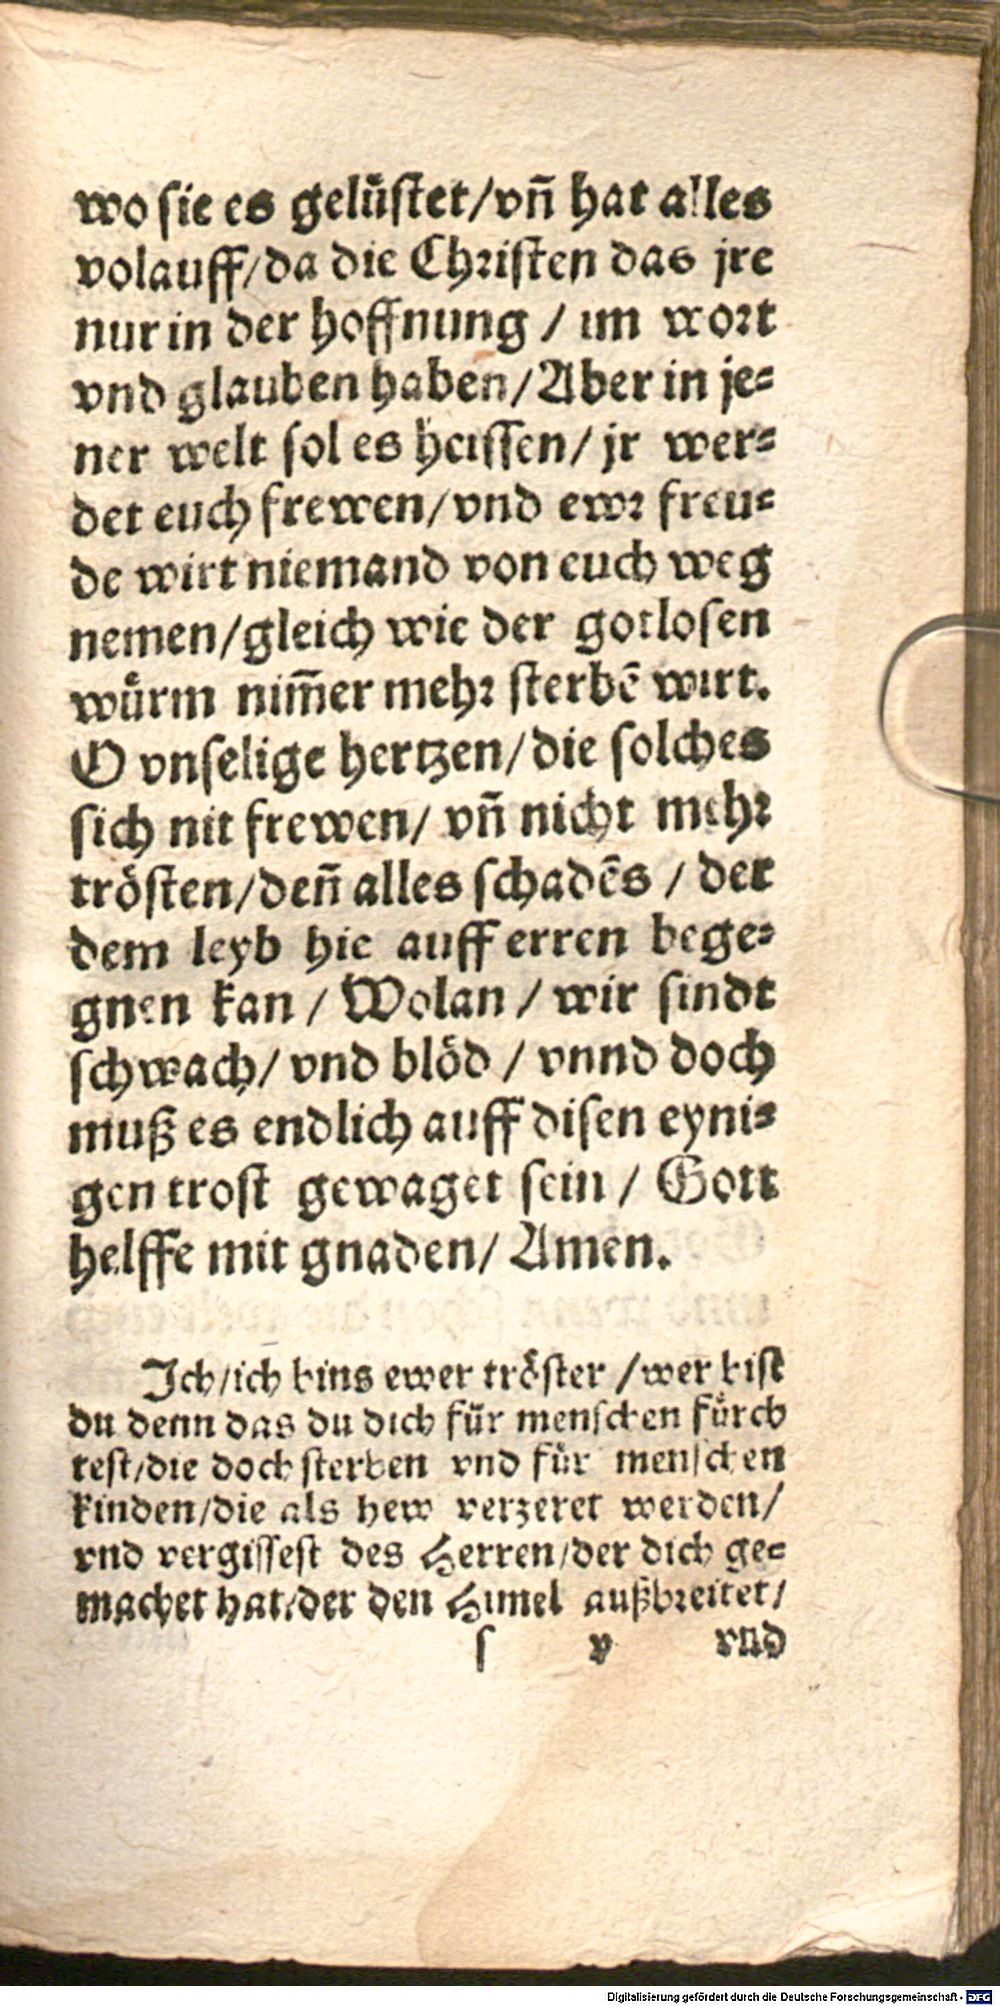 wo sie es gelüſtet/vn̄ hat alles
volauff/da die Chriſten das jre
nur in der hoffnung / im wort
vnd glauben haben/Aber in je-
ner welt ſol es heiſſen/ jr wer-
det euch frewen/vnd ewr freu-
de wirt niemand von euch weg
nemen/gleich wie der gotloſen
würm nim̄er mehr ſterbē wirt.
O vnſelige hertzen/die ſolches
ſich nit frewen/ vn̄ nicht mehr
tröſten/den̄ alles ſchadēs / der
dem leyb hie auff erren bege-
gnen kan / Wolan / wir ſindt
ſchwach/ vnd blöd / vnnd doch
muß es endlich auff diſen eyni-
gen troſt gewaget ſein / Gott
helffe mit gnaden/ Amen.
Ich/ich bins ewer tröſter /wer biſt
du denn das du dich für menſchen fürch
teſt/die doch ſterben vnd für menſchen
kinden/die als hew verzeret werden/
vnd vergiſſeſt des Herren/der dich ge-
machet hat/der den Himel außbreitet/
ſ v vnd
Digitalisierung gefördert durch die Deutsche Forschungsgemeinschaft - DFG